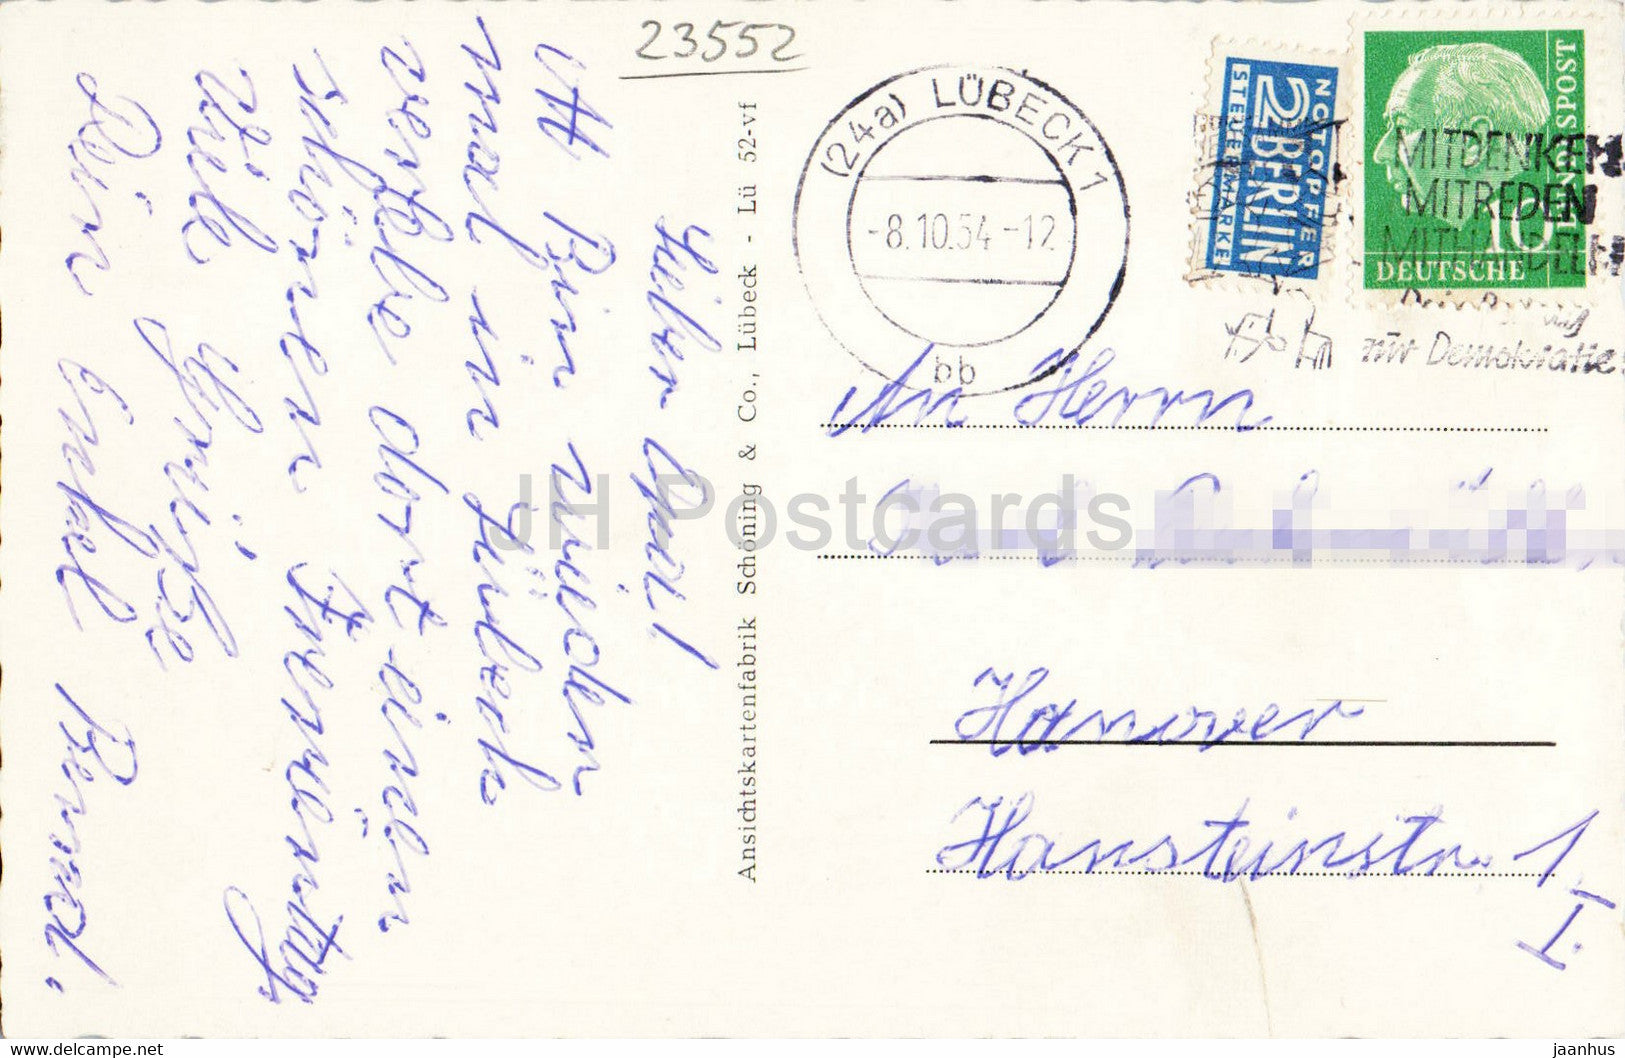 23552
Lieber Opa!
Bin wieder
mal in Lübeck
verlebe dort einen
schönen Ferientag
Viele Grüße
Dein Enkel Bernd.
Ansichtskartenfabrik Schöning & Co., Lübeck - Lü 52-vf
(24a) LÜBECK 1
-8.10.54-12
bb
NOTOPFER
2 BERLIN
STEUERMARKE
DEUTSCHE BUNDESPOST
10
MITDENKEN
MITREDEN
MITHANDELN
zur Demokratie
An Herrn
Hanover
Hansteinstr. 1
I.
JH Postcards
www.delcampe.net
jaanhus